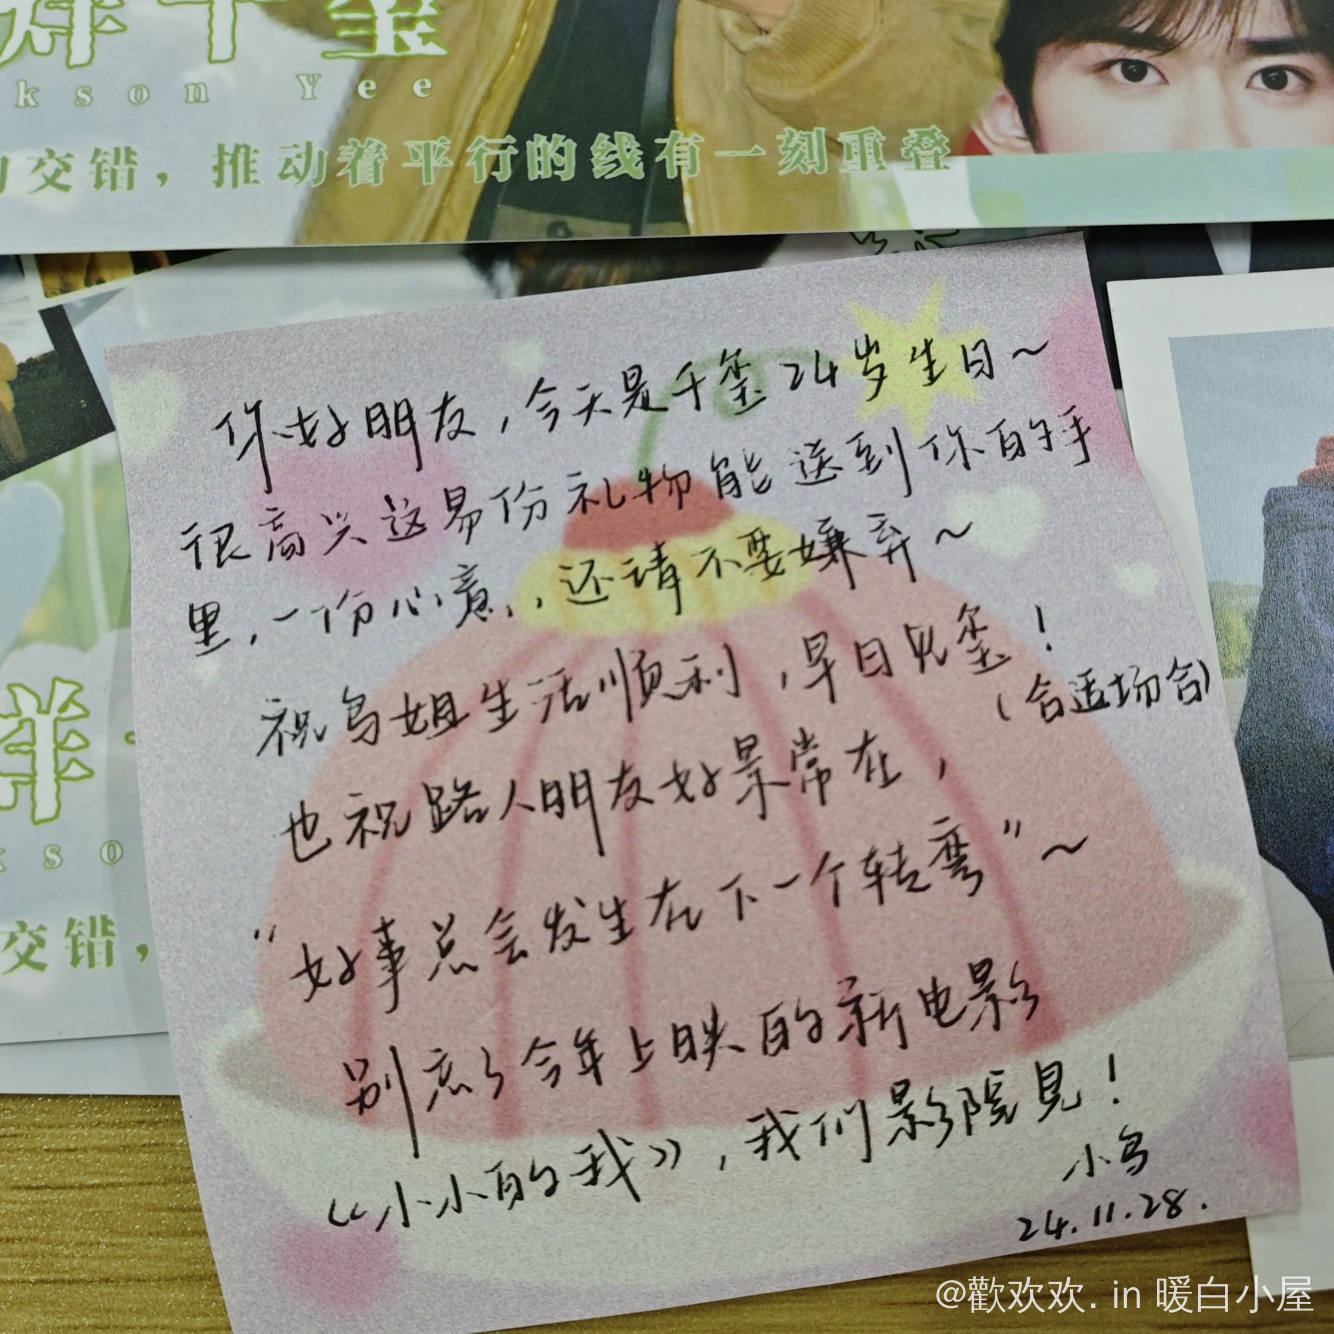 烊千玺
kson Yee
交错，推动着平行的线有一刻重叠
你好朋友，今天是千玺24岁生日～
很高兴这易份礼物能送到你的手
里，一份心意，还请不要嫌弃～
祝鸟姐生活顺利，早日见玺！
（合适场合）
也祝路人朋友好景常在，
“好事总会发生在下一个转弯”～
别忘了今年上映的新电影
《小小的我》，我们影院见！
小鸟
24.11.28.
烊
kso
交错，
@歡欢欢. in 暖白小屋